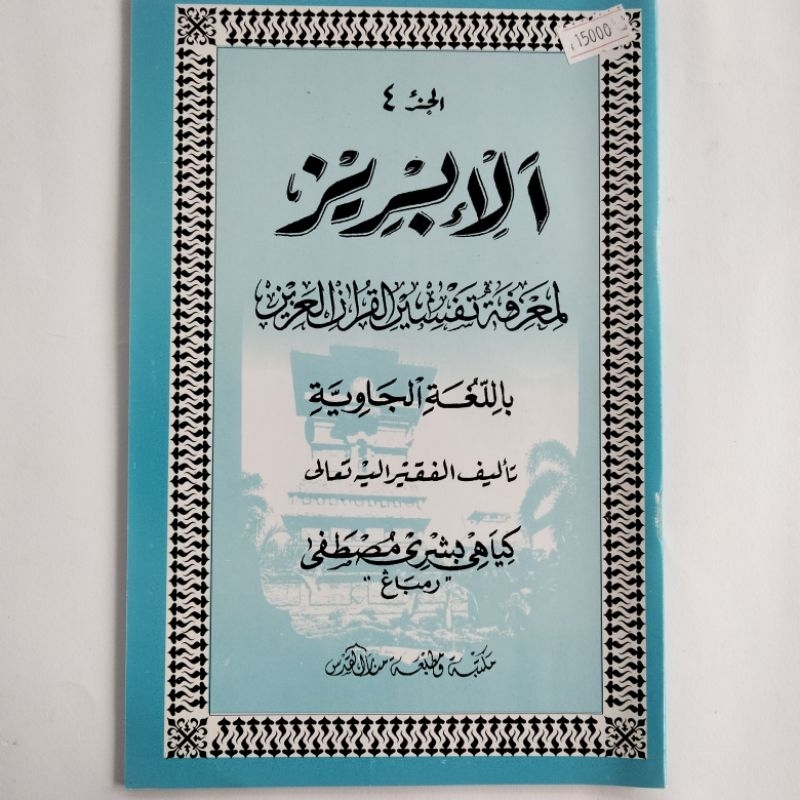 15000
الجزء ٤
اَلْاِبْرِيْز
لِمَعْرِفَةِ تَفْسِيْرِ الْقُرْآنِ الْعَزِيْزِ
بِاللُّغَةِ الْجَاوِيَّةِ
تأليف الفقير اليه تعالى
كياهي بشرى مصطفى
"رمباغ"
مكتبة ومطبعة منارا قدس